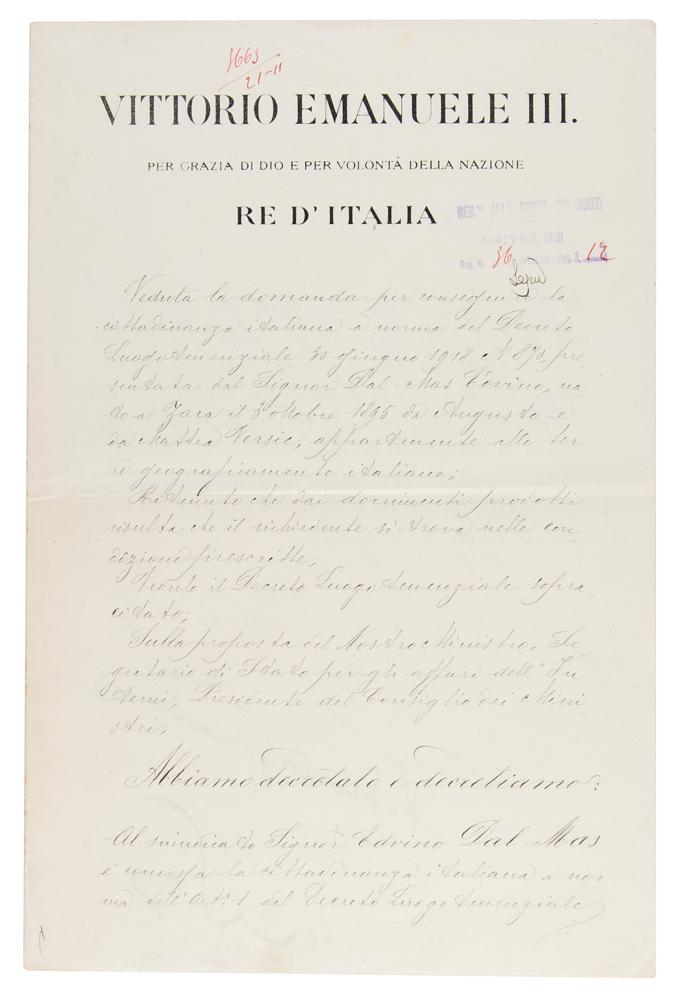 3663
21-11
VITTORIO EMANUELE III.
PER GRAZIA DI DIO E PER VOLONTÀ DELLA NAZIONE
RE D'ITALIA
REG.to ALLA CORTE DEI CONTI
Addì 22 NOV. 1919
Reg. N. 36 Fog. N. 18
Veduta la domanda per conseguire la
cittadinanza italiana a norma del Decreto
Luogotenenziale 30 giugno 1918 N 870, pre
sentata dal Signor Dal-Mas Edvino, na
to a Zara il 3 ottobre 1895 da Augusto e
da Mattea Versic, appartenente alle ter
re geograficamente italiane;
Ritenuto che dai documenti prodotti
risulta che il richiedente si trova nelle con
dizioni prescritte;
Veduto il Decreto Luogotenenziale sopra
citato;
Sulla proposta del Nostro Ministro, Se
gretario di Stato per gli affari dell'In
terni, Presidente del Consiglio dei Mini
stri;
Abbiamo decretato e decretiamo:
Al suindicato Signor Edvino Dal-Mas
è concessa la cittadinanza italiana a nor
ma dell'art. 1 del Decreto Luogotenenziale